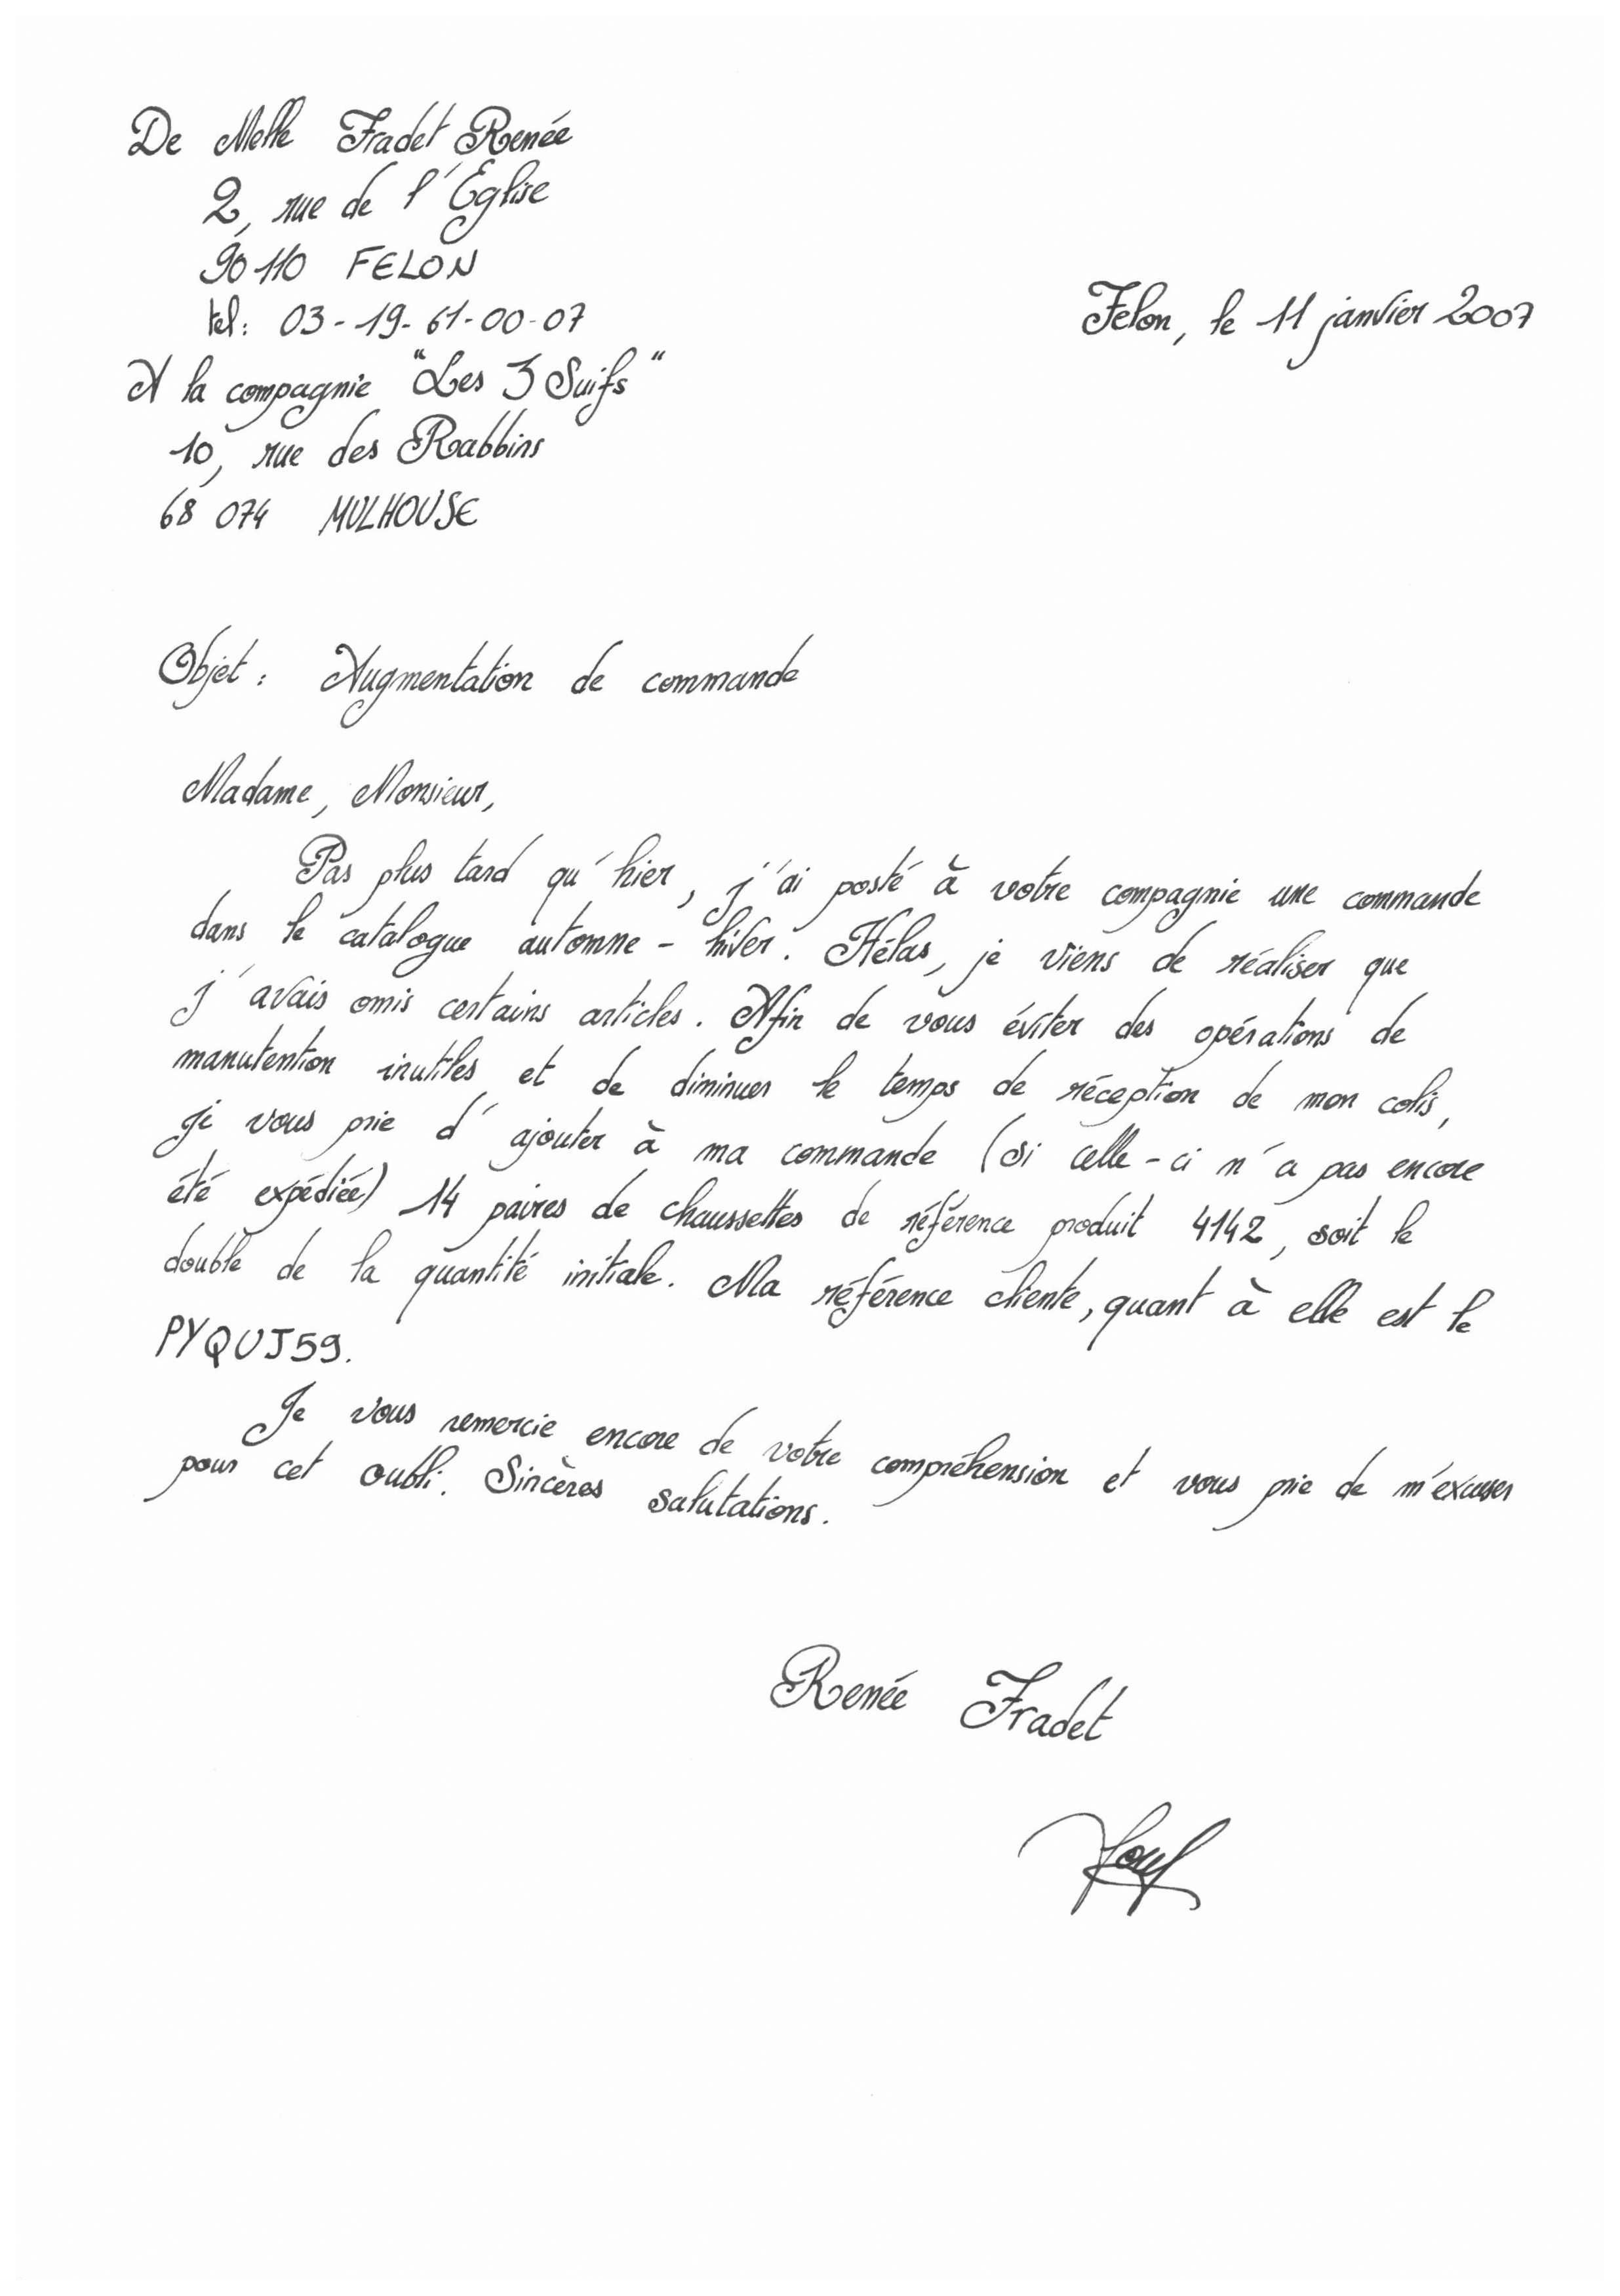 De Melle Fradet Renée
2, rue de l'Eglise
90110 FELON
tel: 03-19-61-00-07
Felon, le 11 janvier 2007
A la compagnie "Les 3 Suifs"
10, rue des Rabbins
68 074 MULHOUSE
Objet : Augmentation de commande
Madame, Monsieur,
Pas plus tard qu'hier, j'ai posté à votre compagnie une commande
dans le catalogue automne - hiver. Hélas, je viens de réaliser que
j'avais omis certains articles. Afin de vous éviter des opérations de
manutention inutiles et de diminuer le temps de réception de mon colis,
je vous prie d'ajouter à ma commande (si celle-ci n'a pas encore
été expédiée) 14 paires de chaussettes de référence produit 4142, soit le
double de la quantité initiale. Ma référence cliente, quant à elle est le
PYQUJ59.
Je vous remercie encore de votre compréhension et vous prie de m'excuser
pour cet oubli. Sincères salutations.
Renée Fradet